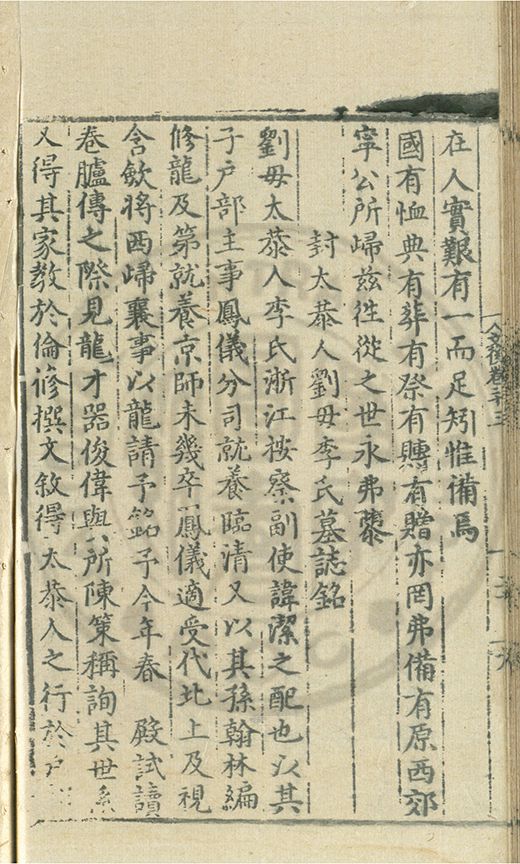 在人實艱有一而足矧惟備焉
國有恤典有葬有祭有賻有贈亦罔弗備有原西郊
寧公所歸茲徃從之世永弗
封太恭人劉母李氏墓誌銘
劉母太恭人李氏浙江按察副使諱潔之配也以其
子户部主事鳳儀分司就養臨清又以其孫翰林編
修龍及第就養京師未幾卒鳳儀適受代北上及視
含斂将西歸襄事以龍請予銘予今年春 殿試讀
卷臚傳之際見龍才器俊偉與所陳策稱詢其世系
又得其家教於倫脩撰文敘得太恭人之行於